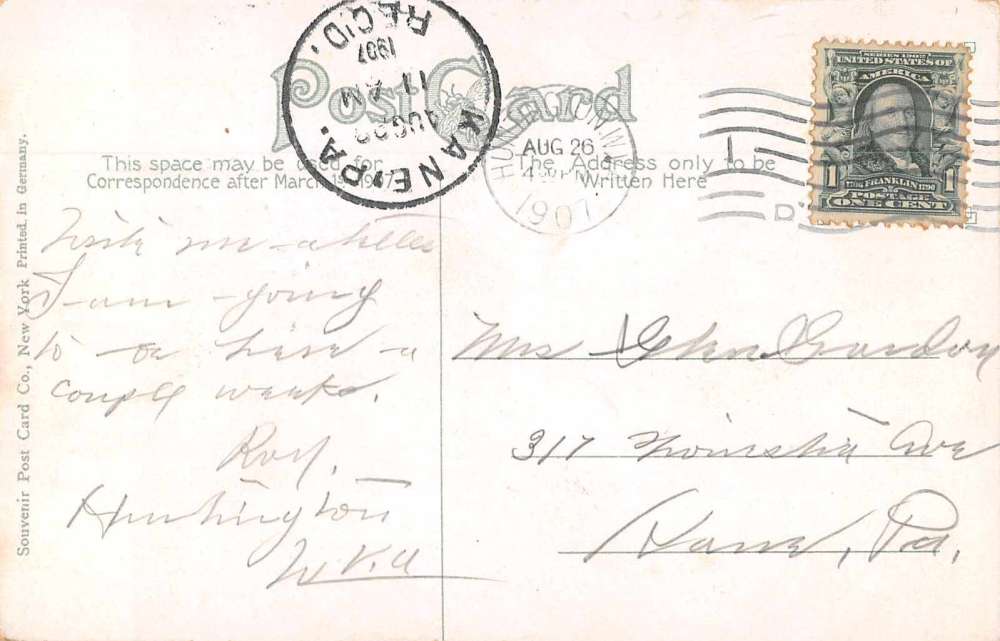 Post Card
This space may be used for
Correspondence after March 1st 1907
The Address only to be
Written Here
KANE, PA.
AUG 28
11 AM
1907
REC'D.
HUNTINGTON, W.VA
AUG 26
4 PM
1907
SERIES 1902
UNITED STATES OF
AMERICA
1706 FRANKLIN 1790
POSTAGE
1 ONE CENT 1
Souvenir Post Card Co., New York Printed in Germany.
Write me a letter
I am going
to be here a
couple weeks.
Roy.
Huntington
W Va
Mrs Glen Gordon
317 Ave
Kane, Pa.